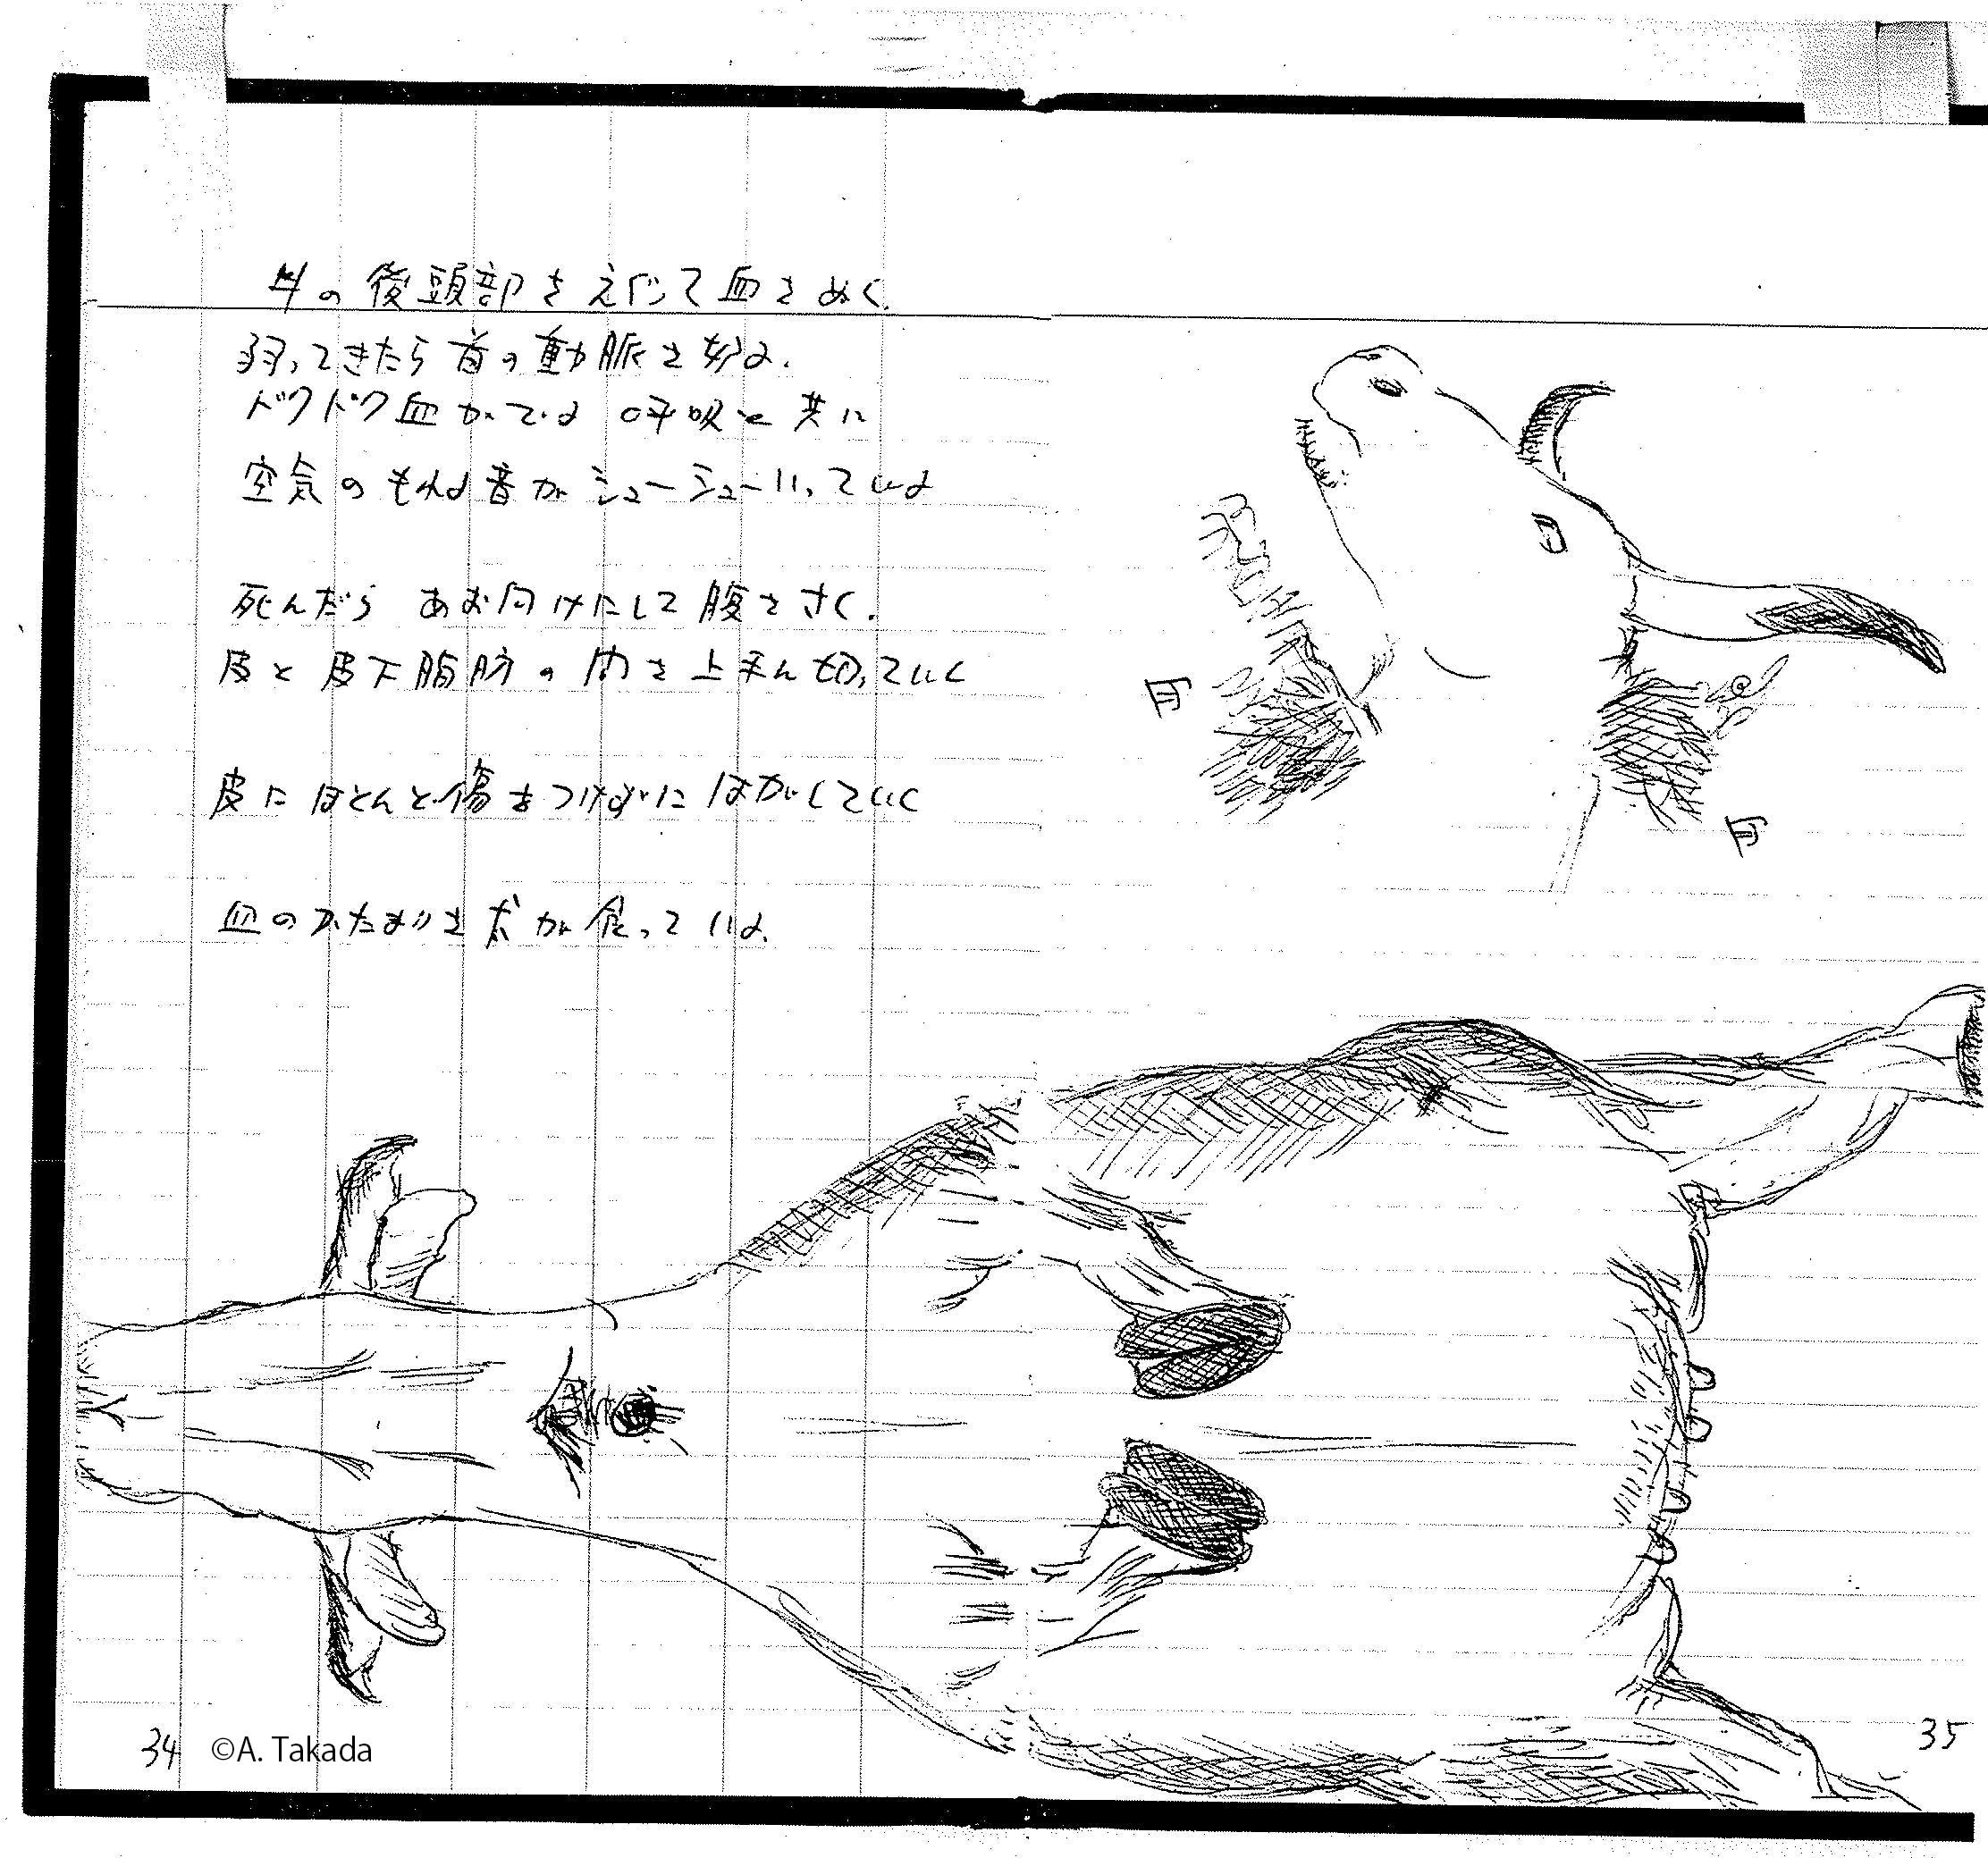 牛の後頭部をえぐって血をぬく.
弱ってきたら首の動脈を切る.
ドクドク血がでる 呼吸と共に
空気のもれる音がシューシューいっている
死んだら あお向けにして腹をさく.
皮と皮下脂肪の間を上手に切っていく
皮にほとんど傷をつけずにはがしていく
血のかたまりを犬が食っている.
耳
耳
34 ©A. Takada
35